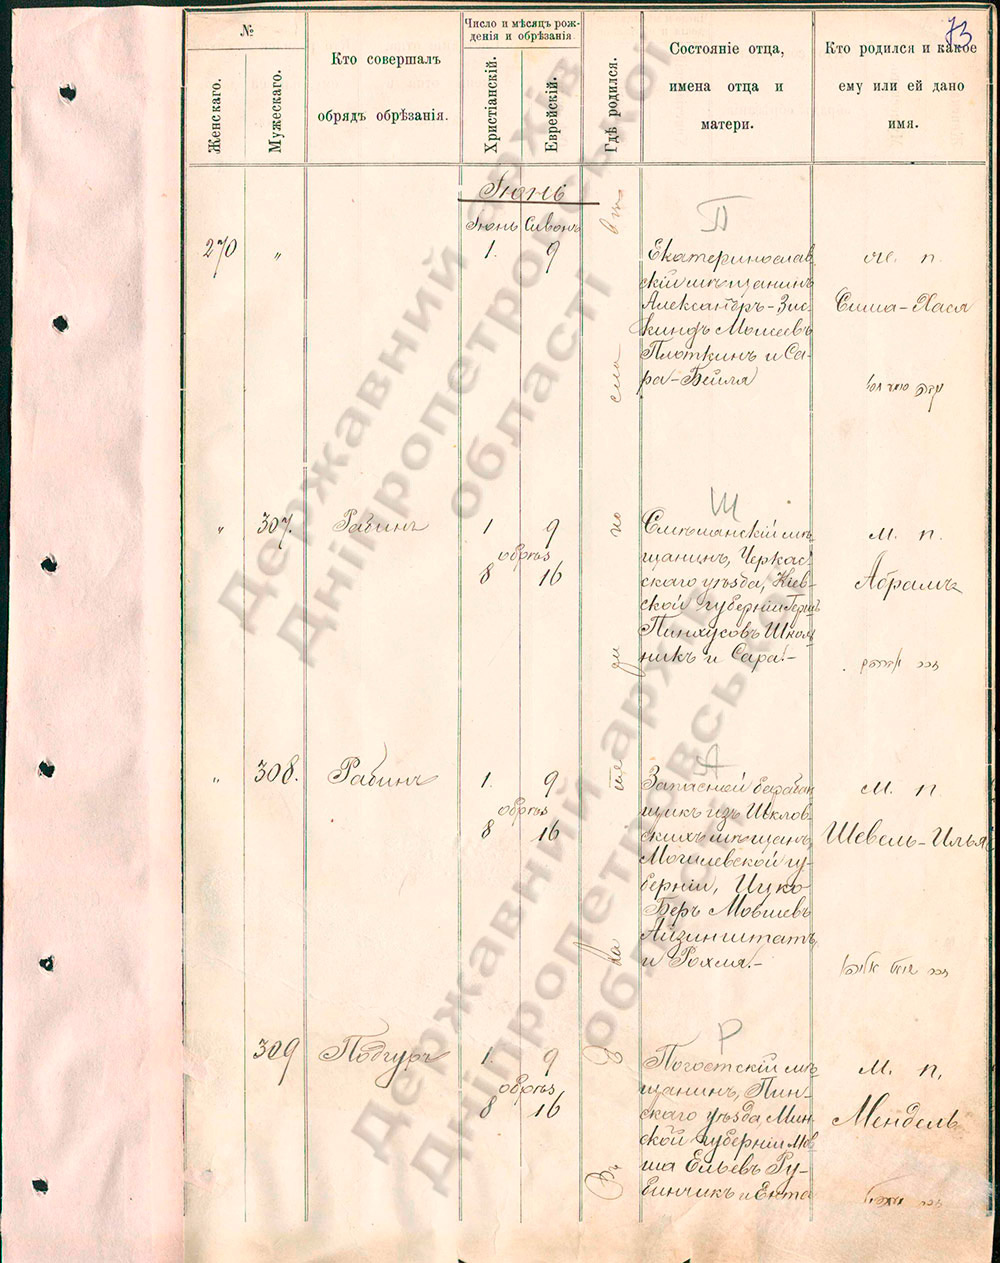 73
№
Женскаго.
Мужескаго.
Кто совершалъ
обрядъ обрѣзанія.
Число и мѣсяцъ рож-
денія и обрѣзанія
Христіанскій.
Еврейскій.
Гдѣ родился.
Состояніе отца,
имена отца и
матери.
Кто родился и какое
ему или ей дано
имя.
Іюнь
Іюнь Сивонъ
270 „ 1. 9
П
Екатеринослав
скій мѣщанинъ
Александръ-Зис-
киндъ Моисеевъ
Плоткинъ и Са-
ра-Бейля
ж. п.
Сима-Хася
„ 307. Рабинъ 1 9
обрѣз
8 16
Ш
Смѣлянскій мѣ
щанинъ, Черкас
скаго уѣзда, Кіев-
ской губерніи Герш
Пинхусовъ Школь
никъ и Сара.-
м. п.
Абрамъ
„ 308. Рабинъ 1. 9
обрѣз
8 16
А
Запасной барабан
щикъ изъ Шклов-
скихъ мѣщанъ,
Могилевской гу-
берніи, Ицко
Беръ Мовшевъ
Айзинштатъ
и Рохля.-
м. п.
Шевель-Илья
309 Подгуръ 1. 9
обрѣз
8 16
Р
Погостскій мѣ
щанинъ, Пин-
скаго уѣзда, Мин
ской губерніи Мов
ша Ельевъ Ру-
бинчикъ и Ента
м. п.
Мендель
Державний архів
Дніпропетровської
області
Державний архів
Дніпропетровської
області